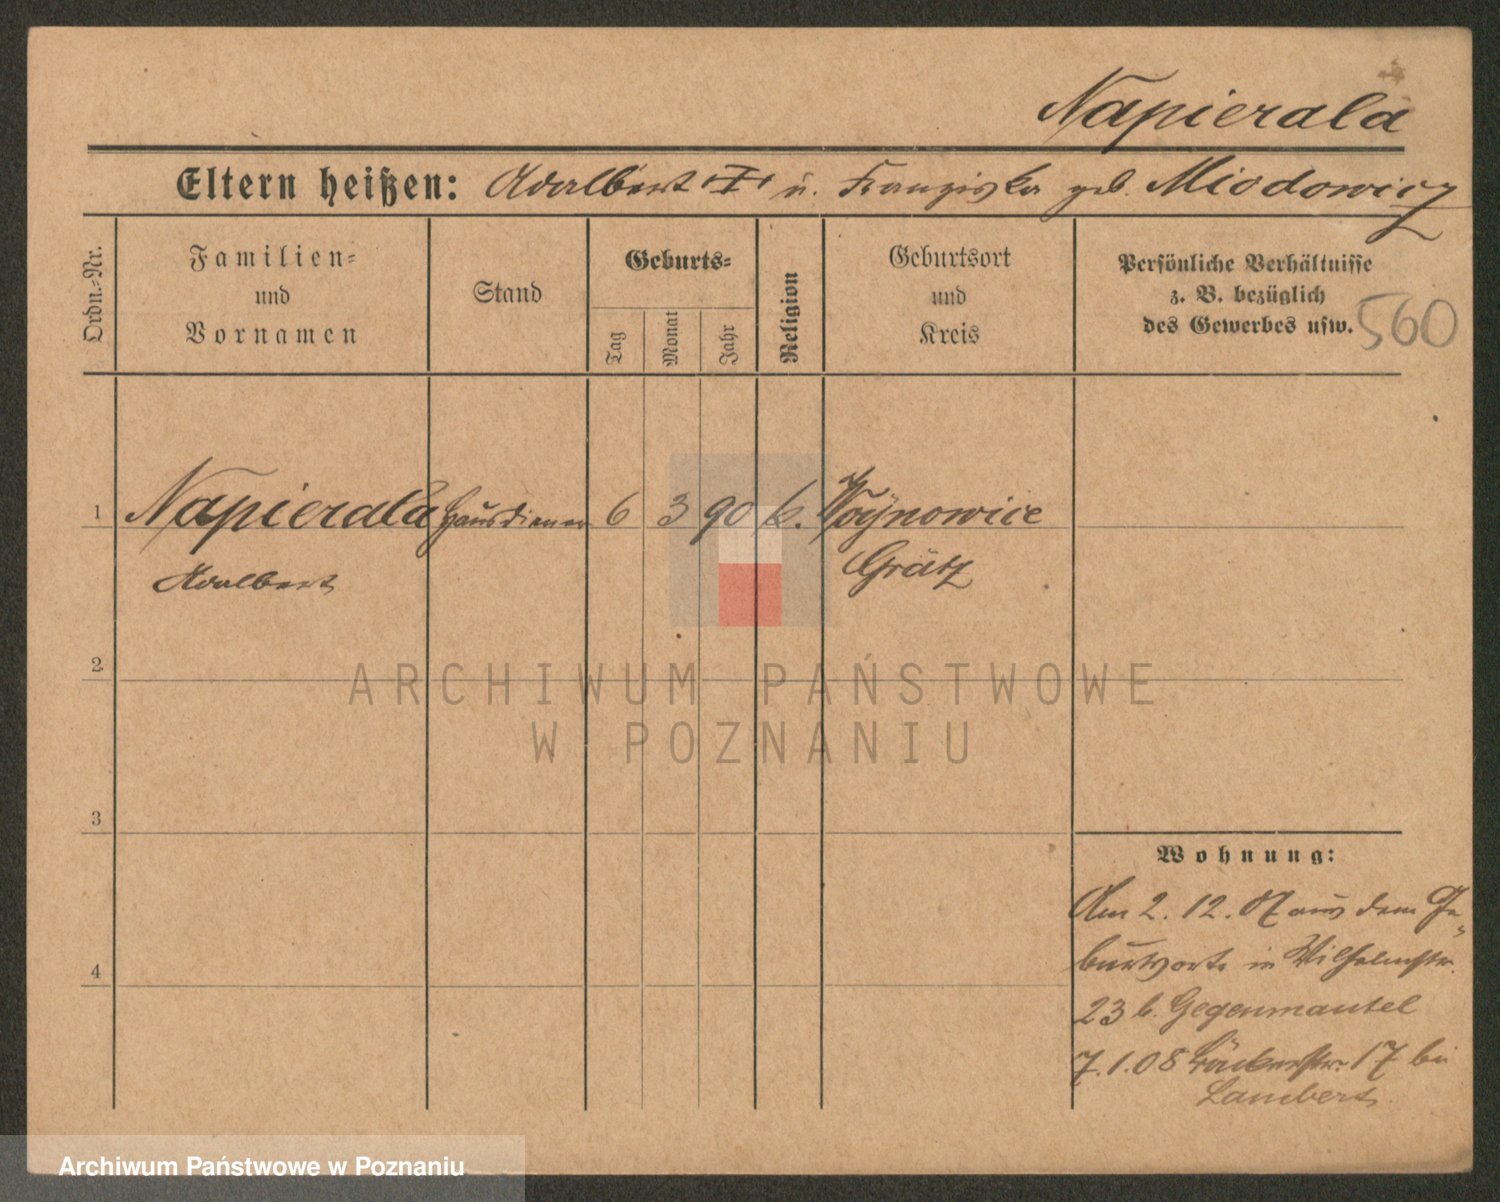 Napierala
Eltern heißen: Adalbert u. Franziska geb. Miodowicz
Ordn.-Nr.
Familien-
und
Vornamen
Stand
Geburts-
Tag
Monat
Jahr
Religion
Geburtsort
und
Kreis
Persönliche Verhältnisse
z. B. bezüglich
des Gewerbes usw.
560
1 Napierala Hausdiener 6 3 90 k. Woynowice
Adalbert Grätz
2
ARCHIWUM PAŃSTWOWE
W POZNANIU
3
Wohnung:
Am 2. 12. 07 aus dem Ge-
4
burtsorte in Wilhelmstr.
23 b. Gegenmantel
7. 1. 08 Bäckerstr. 17 bei
Lambert
Archiwum Państwowe w Poznaniu